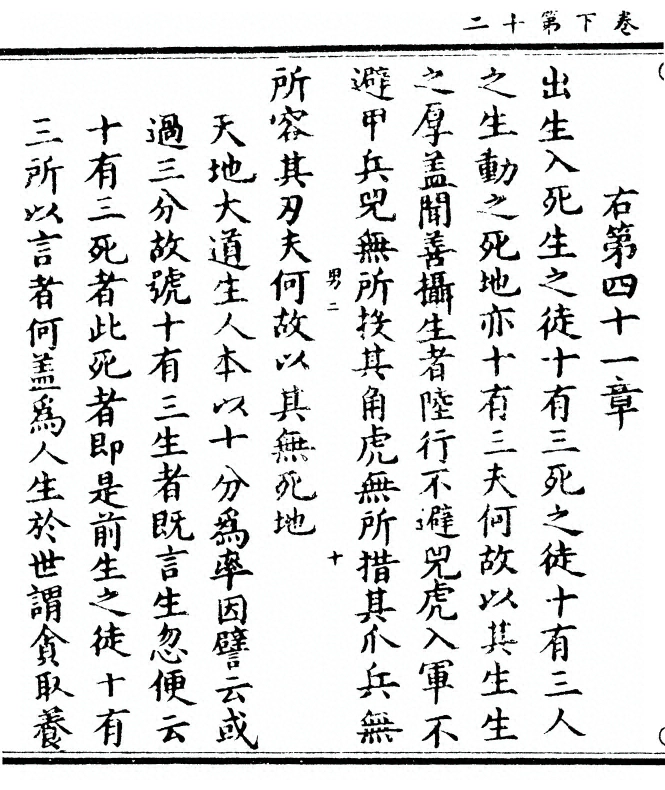 卷下第十二
右第四十一章
出生入死生之徒十有三死之徒十有三人
之生動之死地亦十有三夫何故以其生生
之厚盖聞善攝生者陸行不避兕虎入軍不
避甲兵兕無所投其角虎無所措其爪兵無
男二
十
所容其刃夫何故以其無死地
天地大道生人本以十分爲率因譬云或
過三分故號十有三生者既言生忽便云
十有三死者此死者即是前生之徒十有
三所以言者何盖爲人生於世謂貪取養